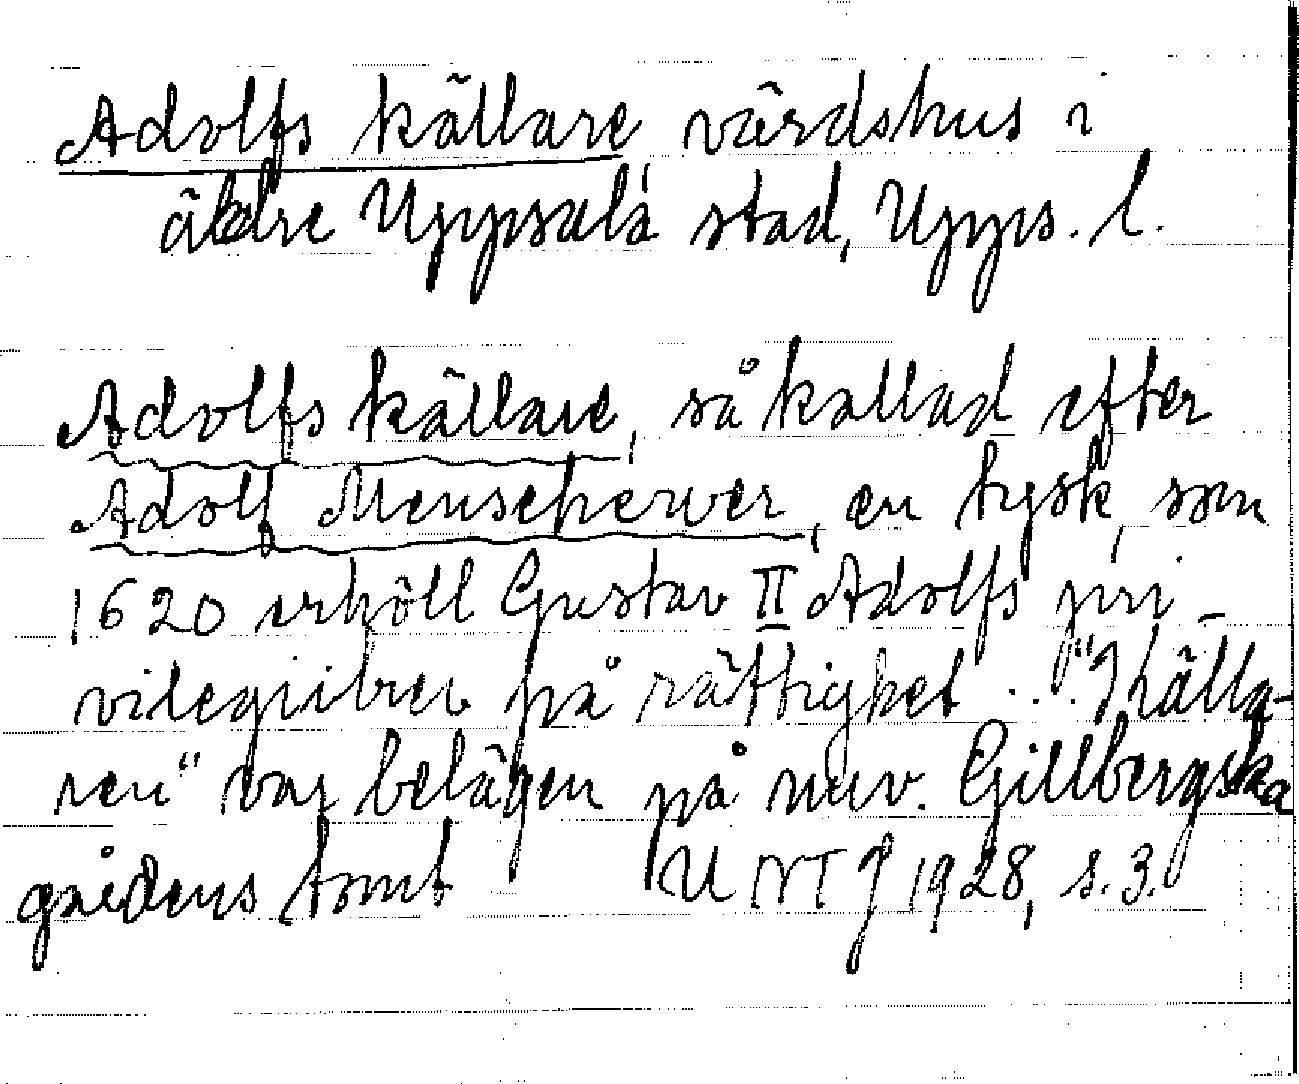 Adolfs källare, värdshus i
äldre Uppsala stad, Upps. l.
Adolfs källare, så kallad efter
Adolf Menschewer, en tysk, som
1620 erhöll Gustav II Adolfs pri-
vilegiibrev på rättighet ... "Källa-
ren" var belägen på nuv. Gillbergska
gårdens tomt UNT J 1928, s. 3.